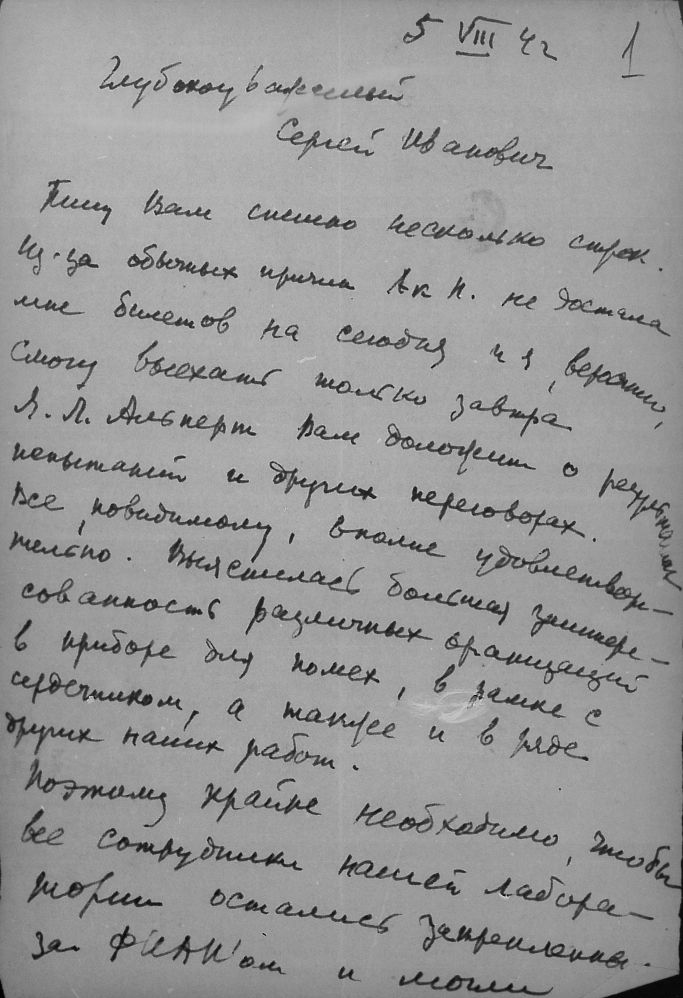 5 VIII 42 1
Глубокоуважаемый
Сергей Иванович
Пишу Вам спешно несколько строк.
Из-за обычных причин Ак Н. не достала
мне билетов на сегодня и я, вероятно,
смогу выехать только завтра
Я. Л. Альперт Вам доложит о результатах
испытаний и других переговорах.
Все, повидимому, вполне удовлетвори-
тельно. Выяснилась большая заинтере-
сованность различных организаций
в приборе для помех, в рамке с
сердечником, а также и в ряде
других наших работ.
Поэтому крайне необходимо, чтобы
все сотрудники нашей лабора-
тории остались закрепленны
за ФИАН'ом и могли